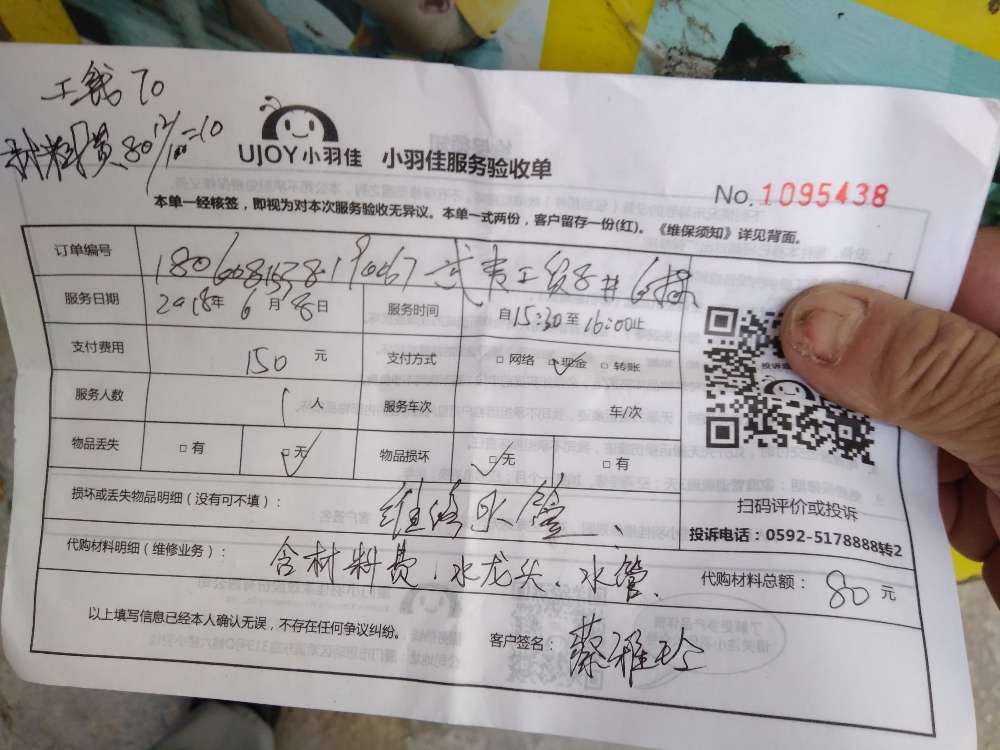 工钱70
材料费80
UJOY小羽佳 小羽佳服务验收单
No. 1095438
本单一经核签，即视为对本次服务验收无异议。本单一式两份，客户留存一份(红)。《维保须知》详见背面。
订单编号
服务日期 2018年 6月 8日 服务时间 自15:30至16:00止
支付费用 150 元 支付方式 □ 网络 □ 现金 □ 转账
服务人数 1 人 服务车次 车/次
物品丢失 □ 有 □ 无 物品损坏 □ 无 □ 有
损坏或丢失物品明细（没有可不填）： 维修水管、
扫码评价或投诉
投诉电话：0592-5178888转2
代购材料明细（维修业务）： 含材料费、水龙头、水管、
代购材料总额： 80 元
以上填写信息已经本人确认无误，不存在任何争议纠纷。 客户签名： 蔡雅珍